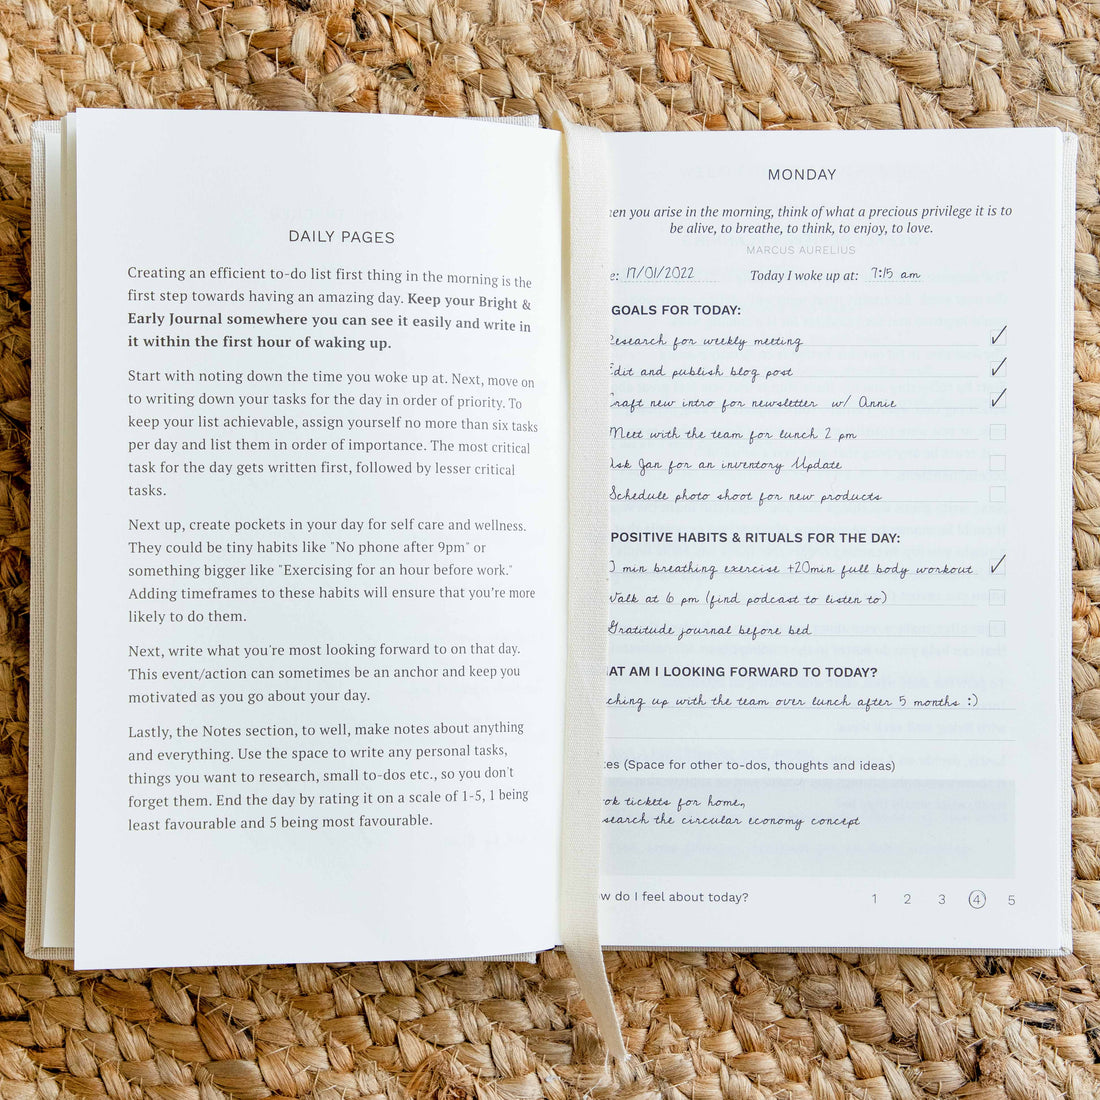 DAILY PAGES
Creating an efficient to-do list first thing in the morning is the
first step towards having an amazing day. Keep your Bright &
Early Journal somewhere you can see it easily and write in
it within the first hour of waking up.
Start with noting down the time you woke up at. Next, move on
to writing down your tasks for the day in order of priority. To
keep your list achievable, assign yourself no more than six tasks
per day and list them in order of importance. The most critical
task for the day gets written first, followed by lesser critical
tasks.
Next up, create pockets in your day for self care and wellness.
They could be tiny habits like "No phone after 9pm" or
something bigger like "Exercising for an hour before work."
Adding timeframes to these habits will ensure that you're more
likely to do them.
Next, write what you're most looking forward to on that day.
This event/action can sometimes be an anchor and keep you
motivated as you go about your day.
Lastly, the Notes section, to well, make notes about anything
and everything. Use the space to write any personal tasks,
things you want to research, small to-dos etc., so you don't
forget them. End the day by rating it on a scale of 1-5, 1 being
least favourable and 5 being most favourable.
MONDAY
en you arise in the morning, think of what a precious privilege it is to
be alive, to breathe, to think, to enjoy, to love.
MARCUS AURELIUS
e: 17/01/2022 Today I woke up at: 7:15 am
GOALS FOR TODAY:
Research for weekly meeting
Edit and publish blog post
Craft new intro for newsletter w/ Annie
Meet with the team for lunch 2 pm
Ask Jan for an inventory Update
Schedule photo shoot for new products
POSITIVE HABITS & RITUALS FOR THE DAY:
0 min breathing exercise +20min full body workout
Walk at 6 pm (find podcast to listen to)
Gratitude journal before bed
AT AM I LOOKING FORWARD TO TODAY?
ching up with the team over lunch after 5 months :)
es (Space for other to-dos, thoughts and ideas)
ok tickets for home,
search the circular economy concept
w do I feel about today? 1 2 3 4 5